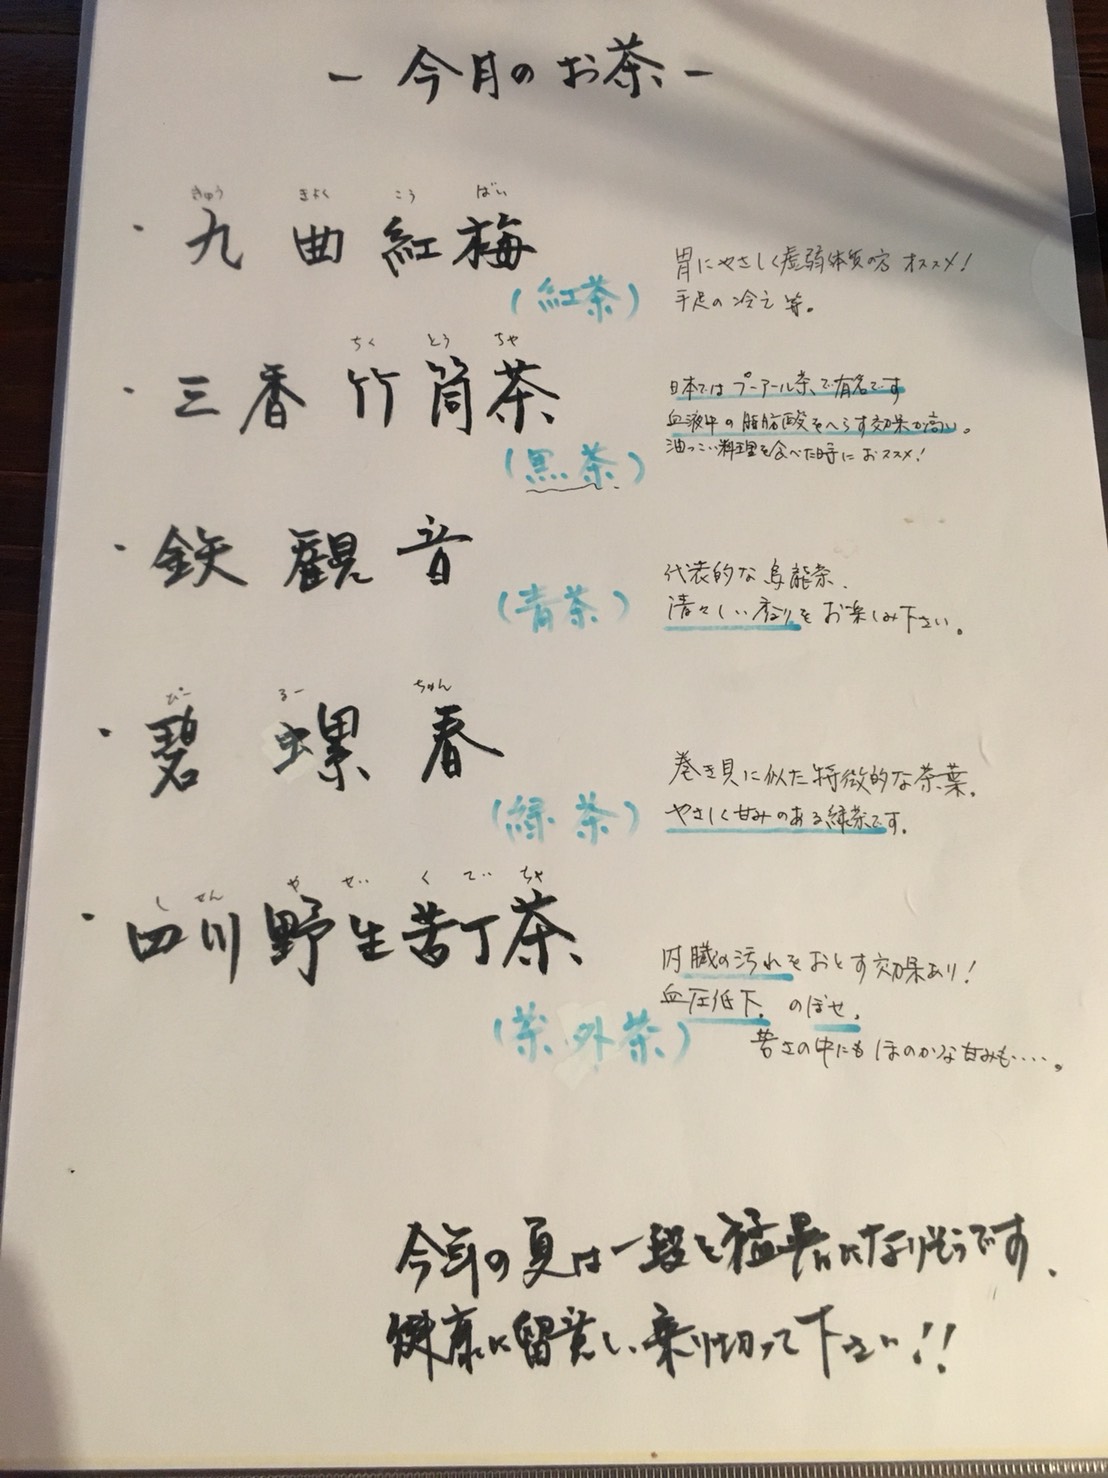 - 今月のお茶 -
きゅう きょく こう ばい
・九曲紅梅
(紅茶)
胃にやさしく虚弱体質の方オススメ!
手足の冷え等。
ちく とう ちゃ
・三香竹筒茶
(黒茶)
日本ではプーアール茶で有名です
血液中の脂肪酸をへらす効果が高い。
油っこい料理を食べた時におススメ!
・鉄觀音
(青茶)
代表的な烏龍茶、
清々しい香りをお楽しみ下さい。
びー るー ちゅん
・碧螺春
(緑茶)
巻き貝に似た特徴的な茶葉。
やさしく甘みのある緑茶です。
し せん や せい く てい ちゃ
・四川野生苦丁茶
(茶外茶)
内臓の汚れをおとす効果あり!
血圧低下、のぼせ。
苦さの中にもほのかな甘みも・・・・。
今年の夏は一段と猛暑になりそうです、
健康に留意し、乗り切って下さい!!